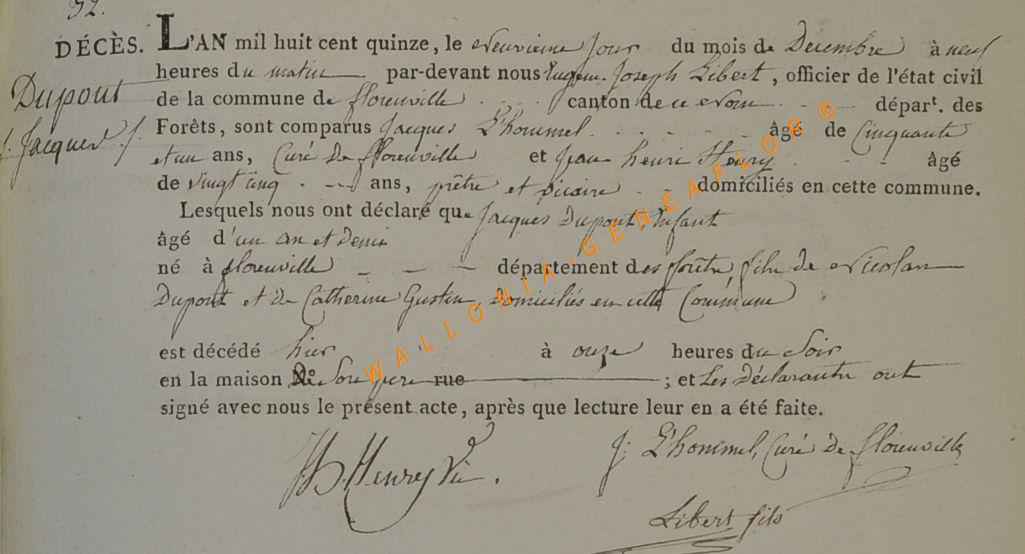 32.
DÉCÈS. L'AN mil huit cent quinze, le neuvieme jour du mois de Décembre à neuf
Dupont
heures du matin par-devant nous Eugene Joseph Libert, officier de l'état civil
de la commune de florenville . . . canton de ce nom - . - départ. des
Jacques
Forêts, sont comparus Jacques L'hommel . . . . . . âgé de Cinquante
et un ans, Curé de florenville et Jean henri Henry . - - âgé
de vingt cinq . - - ans, prêtre et vicaire . - domiciliés en cette commune.
Lesquels nous ont déclaré que Jacques Dupont Enfant
âgé d'un an et demi
né à florenville - - - département des forêts, fils de Nicolas
Dupont et de Catherine Gustin, domiciliés en cette Commune
est décédé hier à onze heures du Soir
en la maison de Son pere rue ; et Les déclarants ont
signé avec nous le présent acte, après que lecture leur en a été faite.
JH. Henry Vic.
J: L'hommel, Curé de florenville
Libert fils
WALLONIA-GENEAFLOR ®